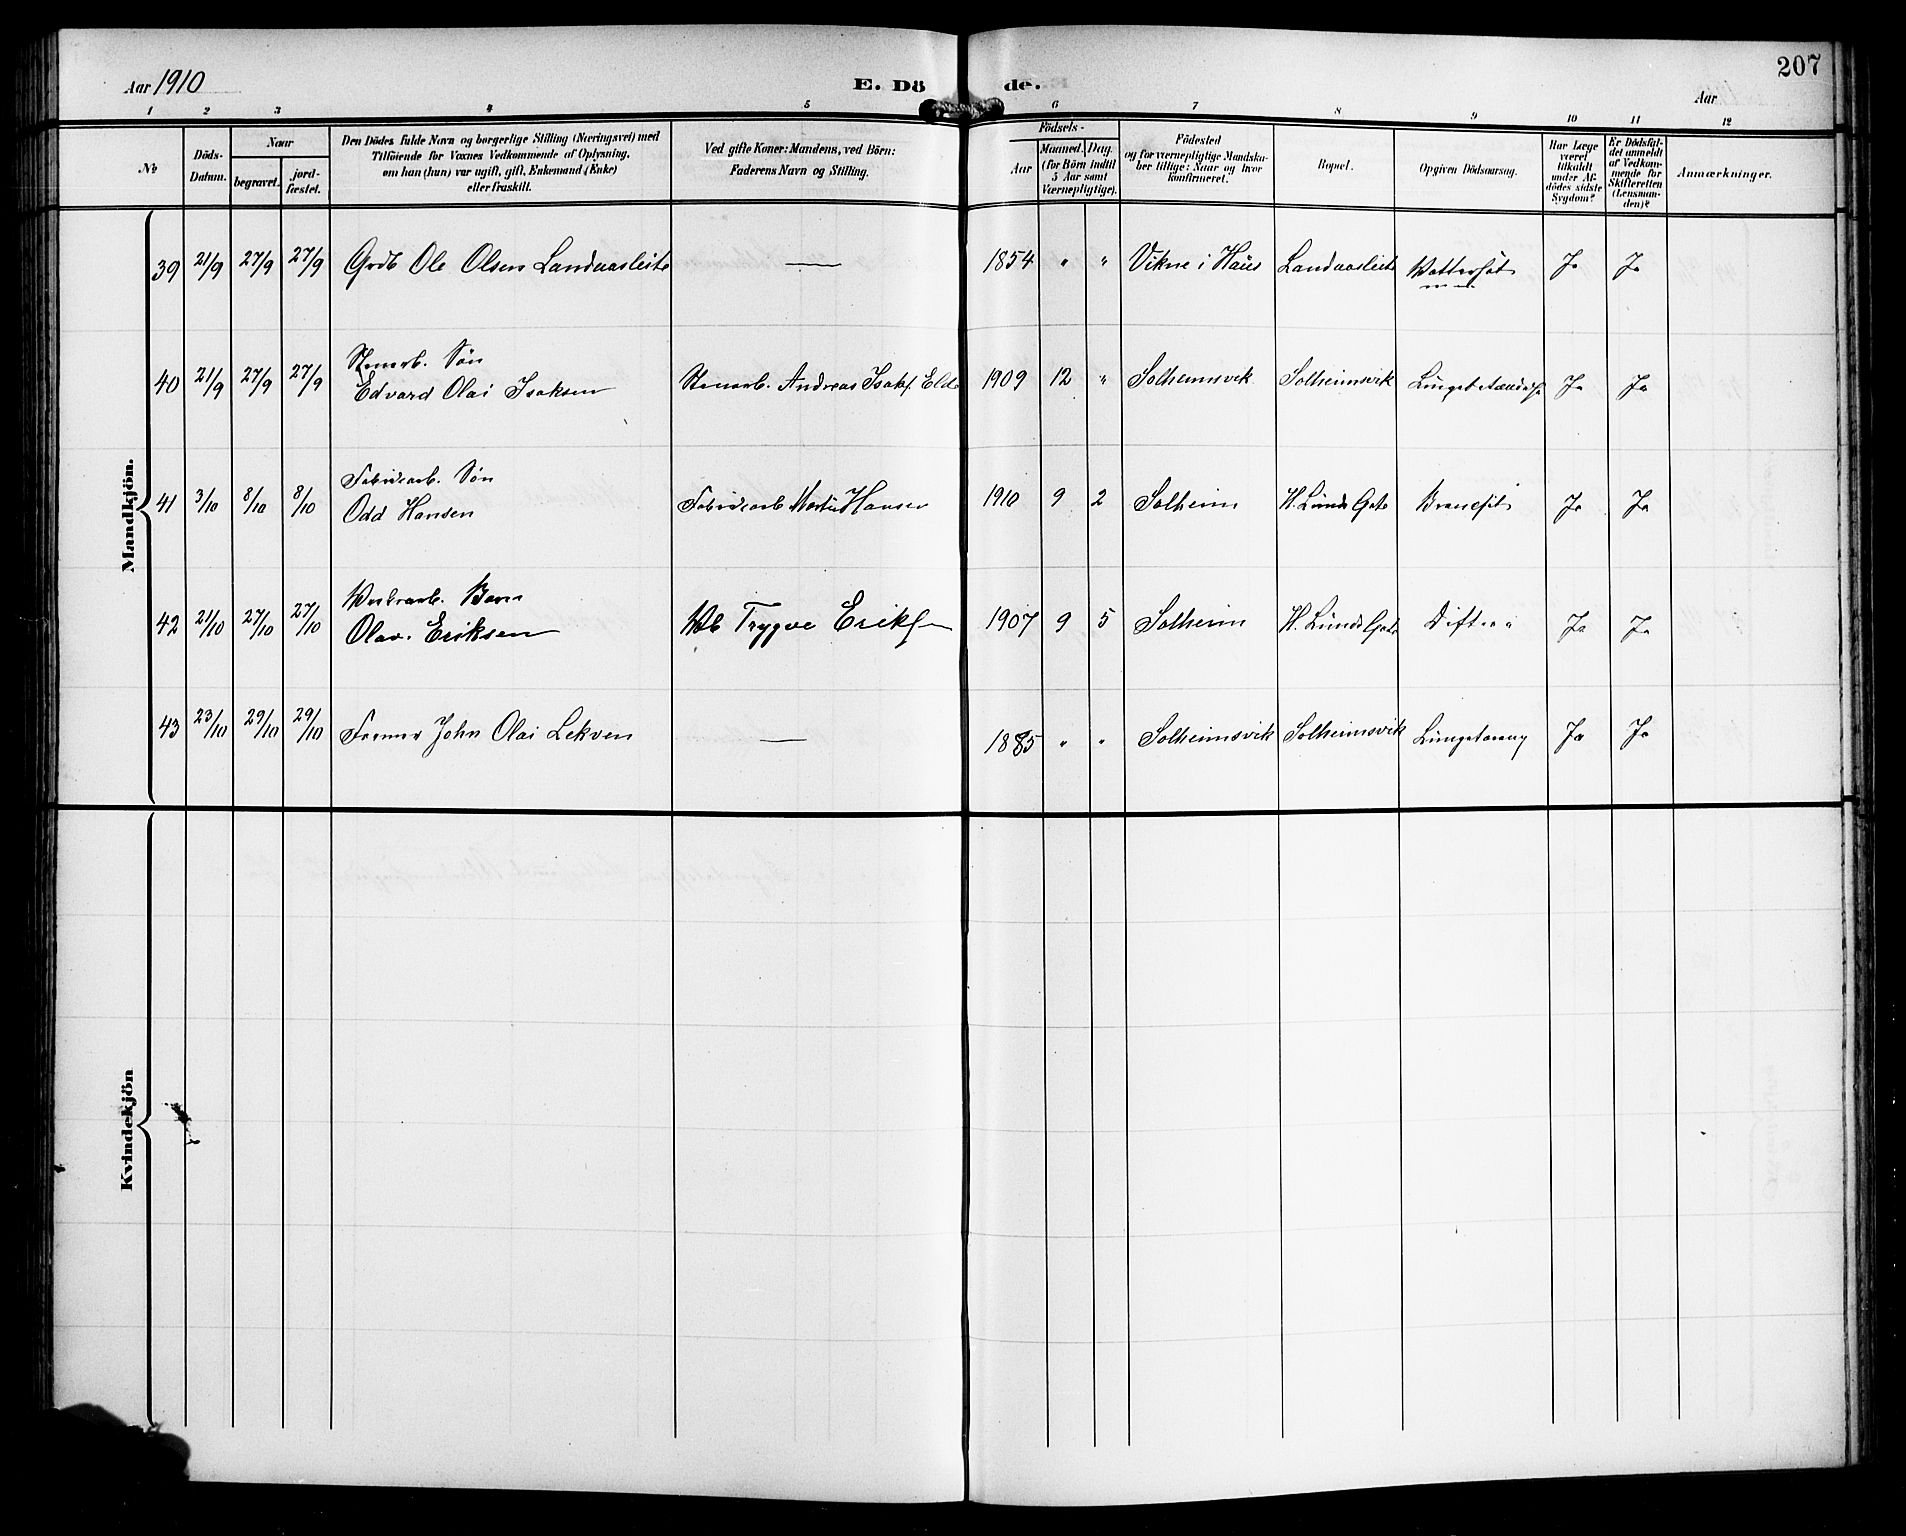 Aar 1910
E. Dö
de.
Aar
207
1 2 3 4 5 6 7 8 9 10 11 12
№
Döds-
Datum.
Naar
begravet.
jord-
fæstet.
Den Dödes fulde Navn og borgerlige Stilling (Næringsvei) med
Tilföiende for Voxnes Vedkommende af Oplysning,
om han (hun) var ugift, gift, Enkemand (Enke)
eller fraskilt.
Ved gifte Koner: Mandens, ved Börn:
Faderens Navn og Stilling.
Födsels-
Aar
Maaned. Dag.
(for Börn indtil
5 Aar samt
Værnepligtige).
Födested
og for værnepligtige Mandska-
ber tillige: Naar og hvor
konfirmeret.
Bopæl.
Opgiven Dödsaarsag.
Har Læge
været
tilkaldt
under Af-
dödes sidste
Sygdom?
Er Dödsfal-
det anmeldt
af Vedkom-
mende for
Skifteretten
(Lensman-
den)?
Anmærkninger.
Mandkjön.
39 21/9 27/9 27/9 Grdb Ole Olsen Landaasleite — 1854 " " Vikne i Haus Landaasleite Vattersot Ja Ja
Stenarb. Sön
40 21/9 27/9 27/9 Edvard Olai Isaksen Stenarb. Andreas Isaks. Elde 1909 12 " Solheimsvik Solheimsvik Ja Ja
Fabrikarb. Sön
41 3/10 8/10 8/10 Odd Hansen Fabrikarb Martin Hansen 1910 9 2 Solheim H. Lunds Gate Ja Ja
Verksarb. Barn
42 21/10 27/10 27/10 Olav Eriksen Trygve Eriks 1907 9 5 Solheim H. Lunds Gate Difteri Ja Ja
43 23/10 29/10 29/10 Former John Olai Lekven — 1885 " " Solheimsvik Solheimsvik Ja Ja
Kvindekjön